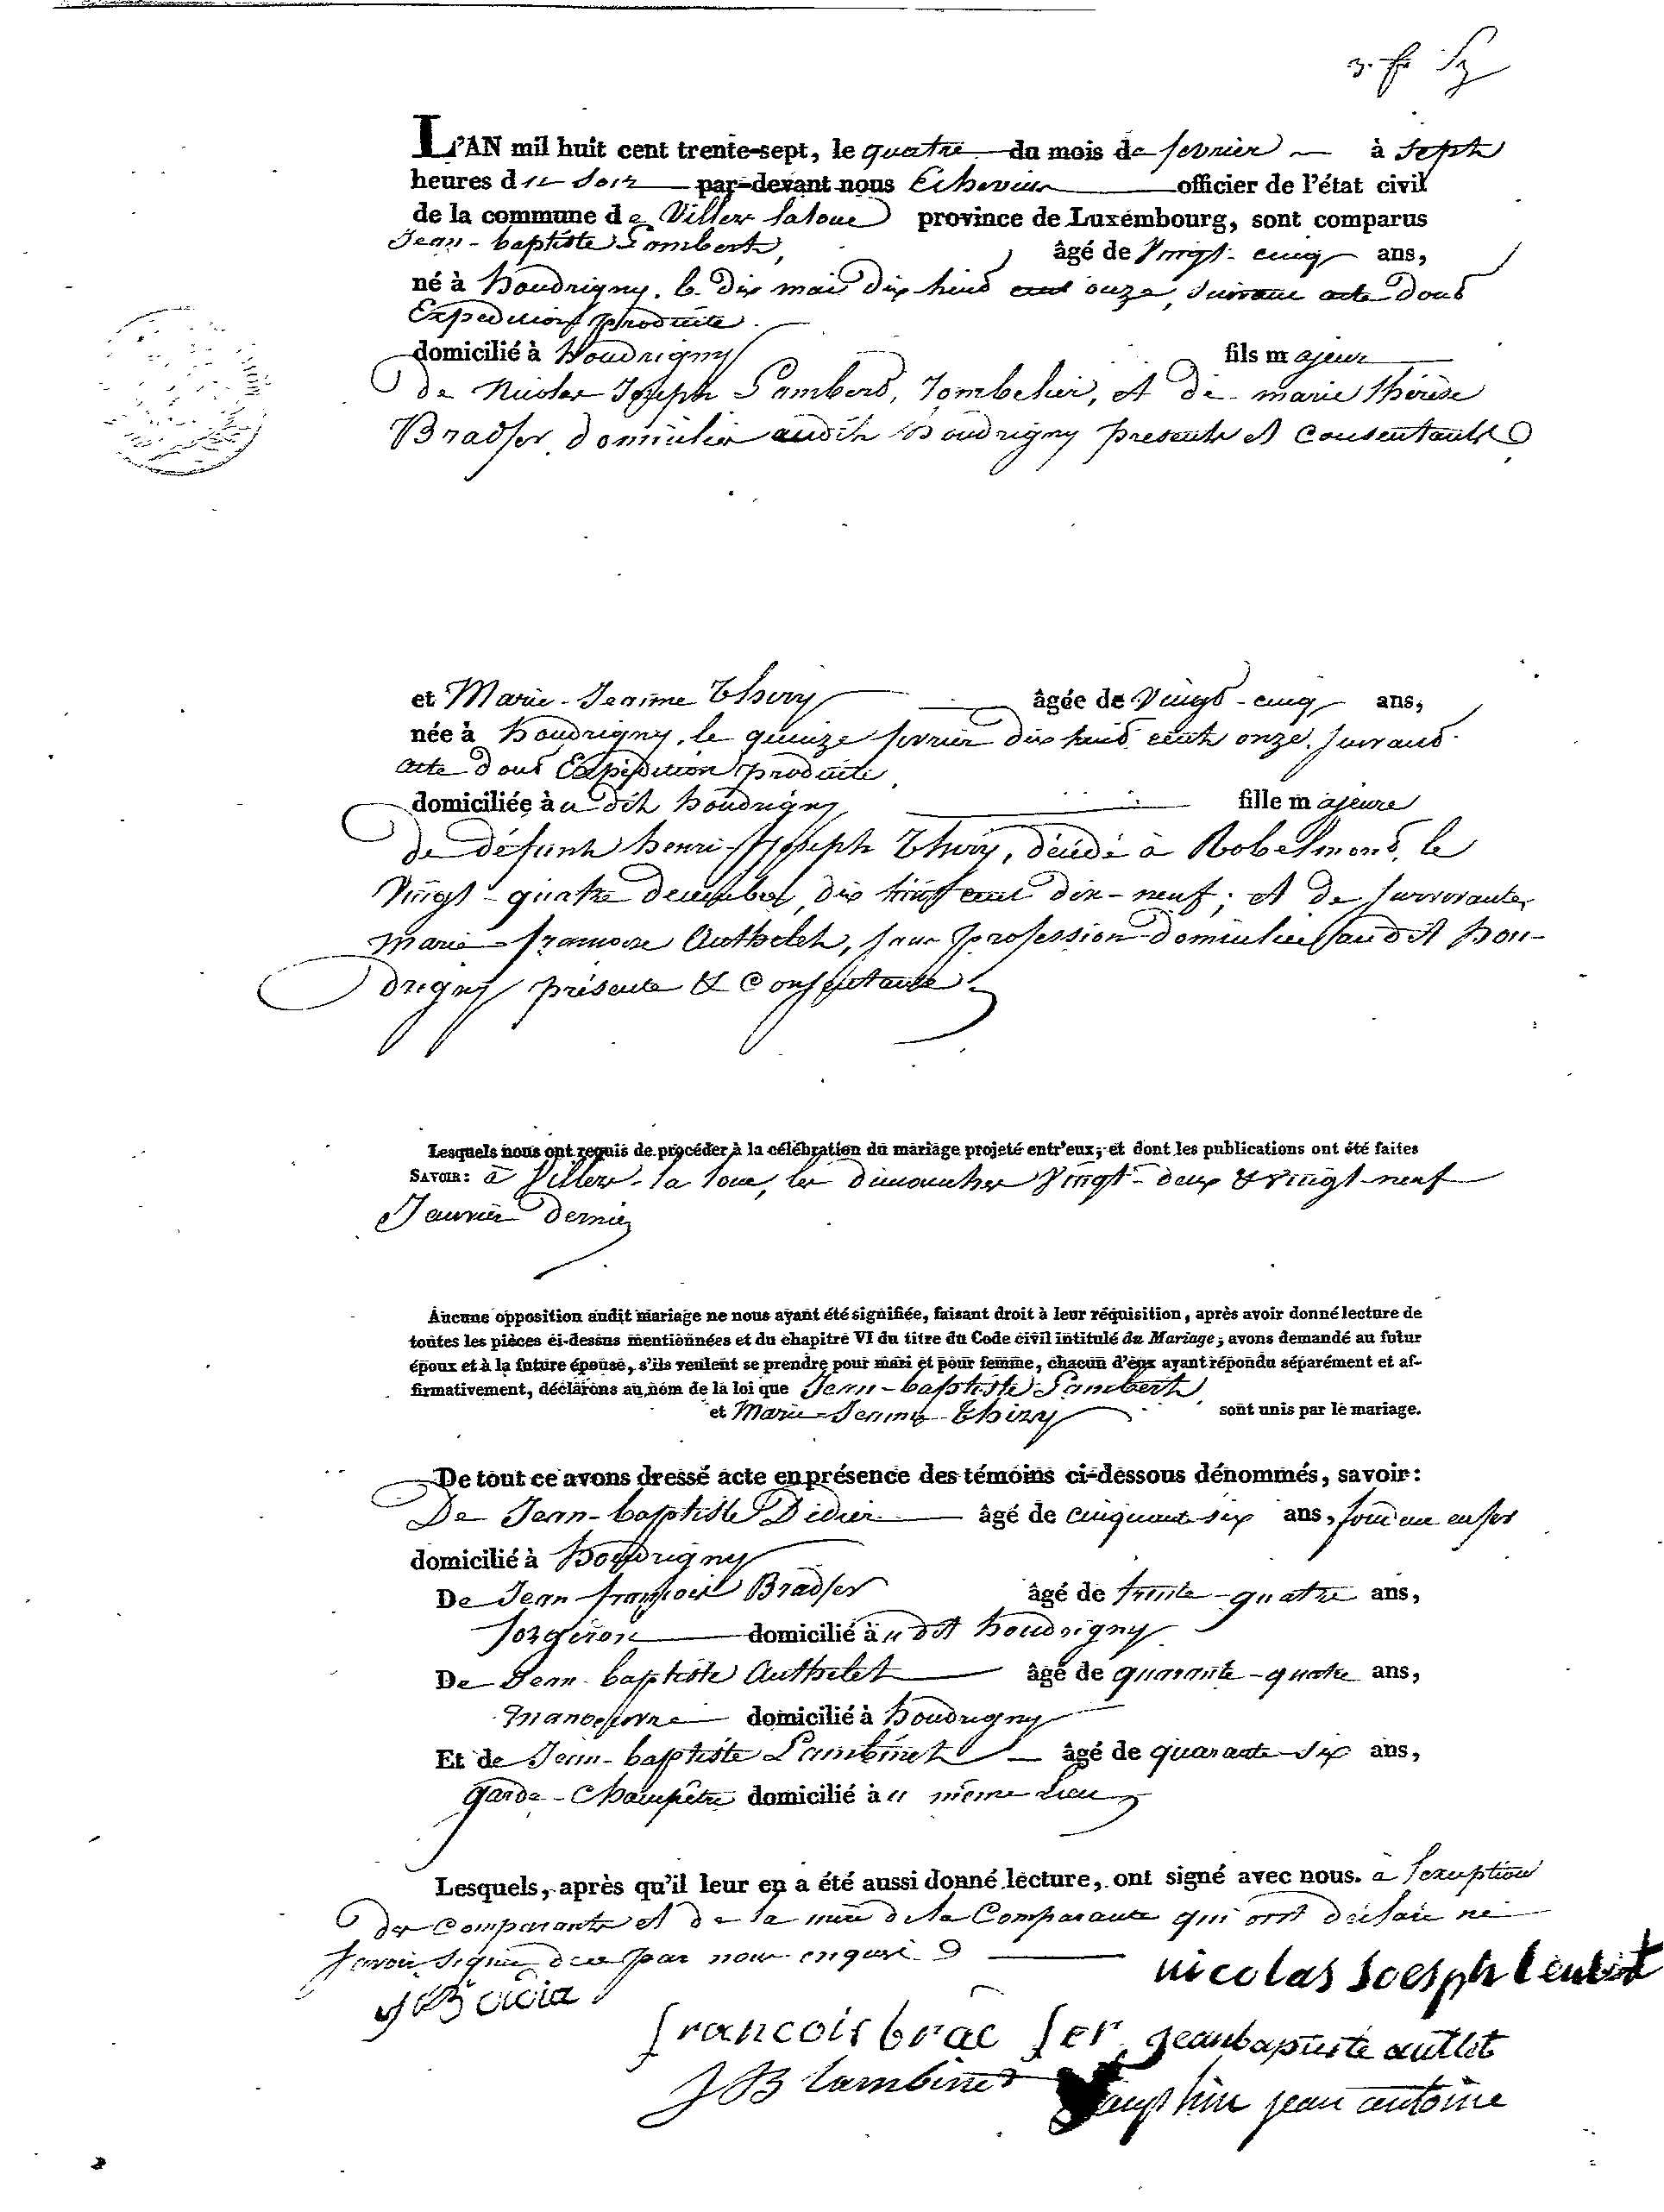 L'AN mil huit cent trente-sept, le quatre du mois de fevrier à Sept
heures du Soir par-devant nous Echevin officier de l'état civil
de la commune de Villers latoue province de Luxembourg, sont comparus
Jean-baptiste Lambert, âgé de Vingt-cinq ans,
né à houdrigny, le dix mai dix huit cent onze, suivant acte dont
Expedition produite.
domicilié à houdrigny fils majeur
de Nicolas Joseph Lambert, Tombelier, et de marie thérèse
Bradfer domicilies audit houdrigny presents et consentants
et Marie-Jeanne Thiry âgée de Vingt-cinq ans,
née à houdrigny, le quinze fevrier dix huit cent onze, suivant
acte dont Expédition produite,
domiciliée à u dit houdrigny fille majeure
de défunt henri-Joseph Thiry, décédé à Robelmont, le
Vingt-quatre decembre, dix huit cent dix-neuf; et de survivante
marie-francoise Authelet, sans profession domiciliée audit hou-
drigny présente & Consentante
Lesquels nous ont requis de procéder à la célébration du mariage projeté entr'eux, et dont les publications ont été faites
SAVOIR: à Villers-la loue, les dimanches Vingt-deux & vingt-neuf
Janvier dernier
Aucune opposition audit mariage ne nous ayant été signifiée, faisant droit à leur réquisition, après avoir donné lecture de
toutes les pièces ci-dessus mentionnées et du chapitre VI du titre du Code civil intitulé du Mariage; avons demandé au futur
époux et à la future épouse, s'ils veulent se prendre pour mari et pour femme, chacun d'eux ayant répondu séparément et af-
firmativement, déclarons au nom de la loi que Jean-baptiste Lambert,
et Marie-Jeanne Thiry sont unis par le mariage.
De tout ce avons dressé acte en présence des témoins ci-dessous dénommés, savoir:
De Jean-baptiste Didier âgé de cinquante six ans,
domicilié à houdrigny
De Jean françois Bradfer âgé de trente-quatre ans,
forgeron domicilié à u dit houdrigny
De Jean-baptiste Authelet âgé de quarante-quatre ans,
manoeuvre domicilié à houdrigny
Et de Jean-baptiste Lambinet âgé de quarante-six ans,
garde-Champêtre domicilié à u même Lieu
Lesquels, après qu'il leur en a été aussi donné lecture, ont signé avec nous. à l'exception
des comparants et de la mère de la Comparante qui ont déclaré ne
savoir signer de ce par nous enquis
nicolas Joesph lembert
JB didier
francois brac fer jeanbaptiste autlet
JB lambinet jean antoine